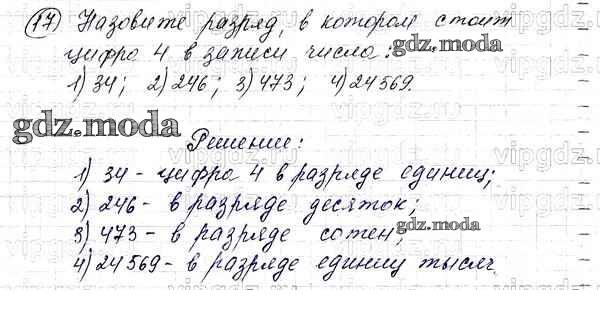 17) Назовите разряд, в котором стоит
цифра 4 в записи числа:
gdz.moda
1) 34; 2) 246; 3) 473; 4) 24569.
gdz.moda
Решение:
1) 34 - цифра 4 в разряде единиц;
2) 246 - в разряде десяток;
gdz.moda
3) 473 - в разряде сотен;
4) 24569 - в разряде единиц тысяч.